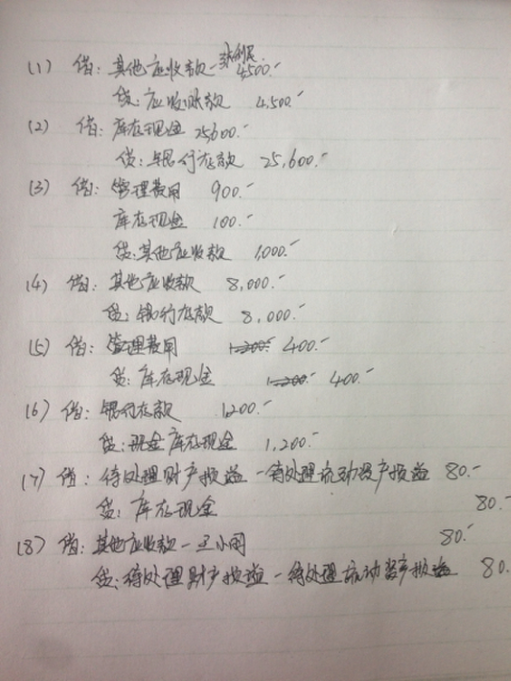 (1) 借: 其他应收款- 4,500.-
贷: 应收账款 4,500.-
(2) 借: 库存现金 25,600.-
贷: 银行存款 25,600.-
(3) 借: 管理费用 900.-
库存现金 100.-
贷: 其他应收款 1,000.-
(4) 借: 其他应收款 8,000.-
贷: 银行存款 8,000.-
(5) 借: 管理费用 1,200.- 400.-
贷: 库存现金 1,200.- 400.-
(6) 借: 银行存款 1,200.-
贷: 现金 库存现金 1,200.-
(7) 借: 待处理财产损益-待处理流动资产损益 80.-
贷: 库存现金 80.-
(8) 借: 其他应收款-王小同 80.-
贷: 待处理财产损益-待处理流动资产损益 80.